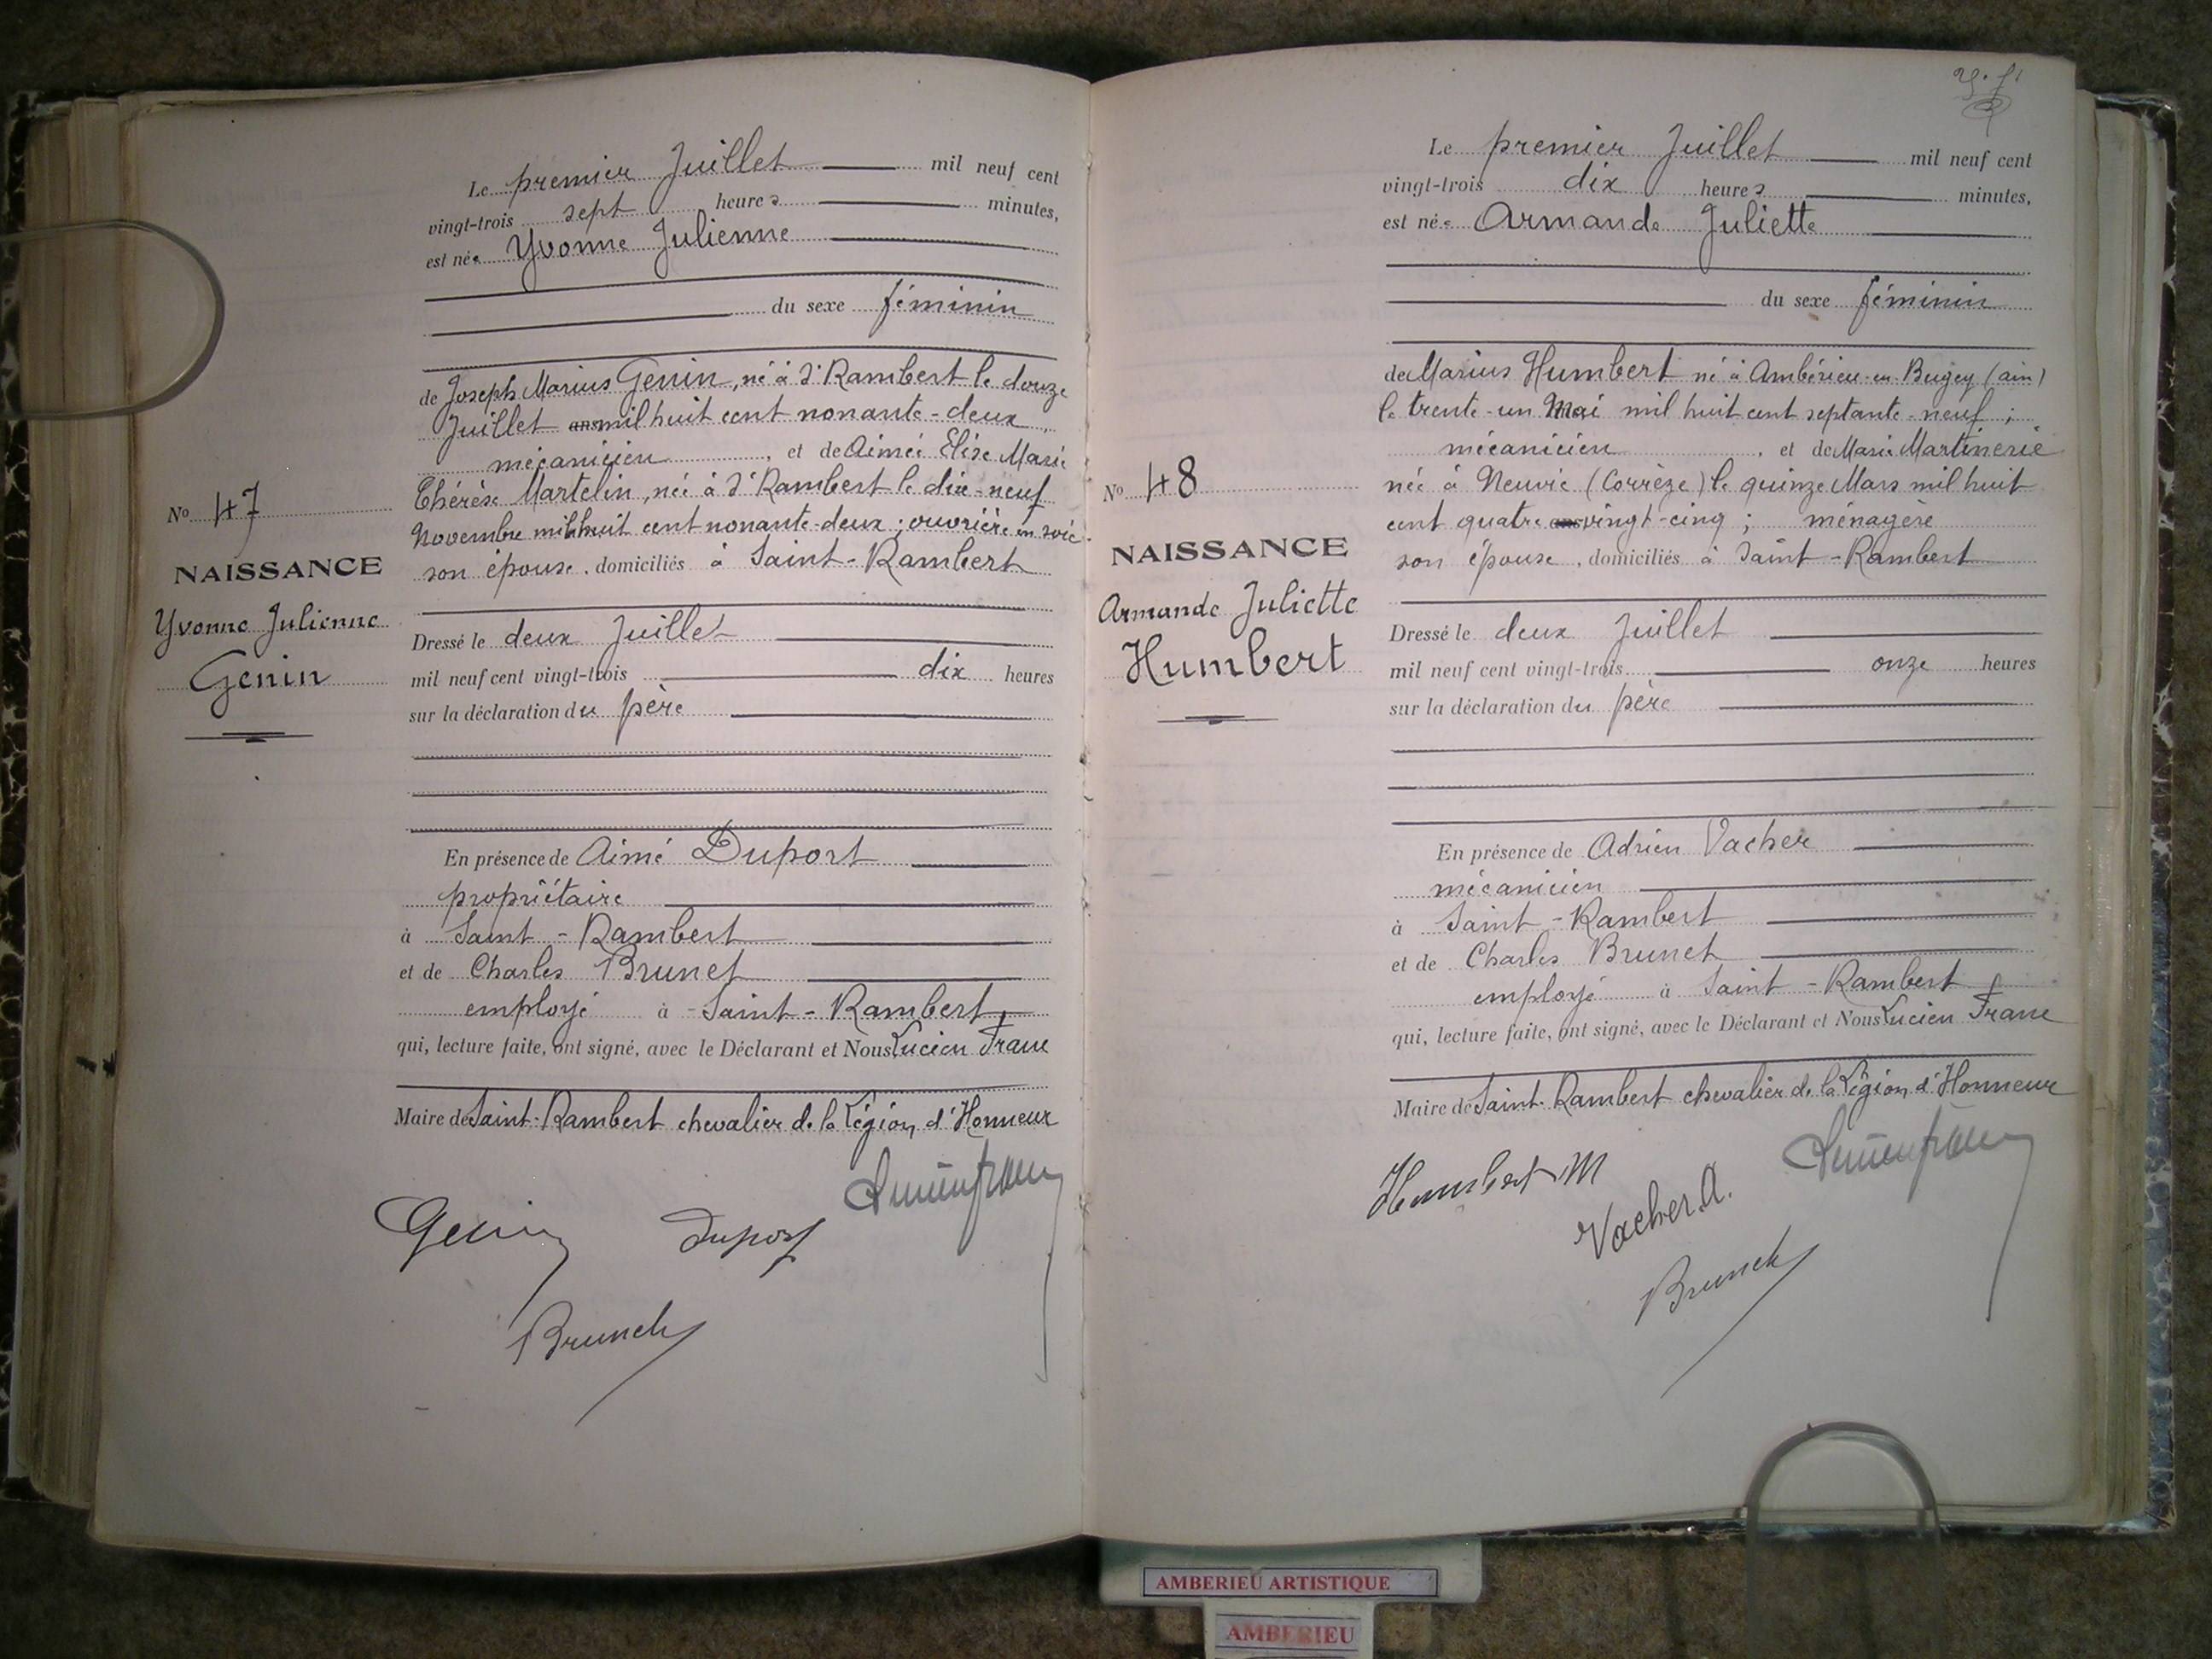 Le premier Juillet mil neuf cent
vingt-trois sept heures minutes,
est née Yvonne Julienne
du sexe féminin
de Joseph Marius Genin, né à St Rambert le douze
Juillet mil huit cent nonante-deux,
mécanicien, et de Aimée Elise Marie
Thérèse Martelin, née à St Rambert le dix-neuf
Novembre mil huit cent nonante-deux; ouvrière en soie
son épouse, domiciliés à Saint-Rambert
No 47
NAISSANCE
Yvonne Julienne
Genin
Dressé le deux Juillet
mil neuf cent vingt-trois dix heures
sur la déclaration du père
En présence de Aimé Duport
propriétaire
à Saint-Rambert
et de Charles Brunet
employé à Saint-Rambert
qui, lecture faite, ont signé, avec le Déclarant et Nous Lucien Franc
Maire de Saint-Rambert chevalier de la Légion d'Honneur
Genin
Duport
Lucien Franc
Brunet
Le premier Juillet mil neuf cent
vingt-trois dix heures minutes,
est née Armande Juliette
du sexe féminin
de Marius Humbert né à Ambérieu-en-Bugey (ain)
le trente-un Mai mil huit cent septante-neuf;
mécanicien, et de Marie Martinerie
née à Neuvic (Corrèze) le quinze Mars mil huit
cent quatre vingt-cinq; ménagère
son épouse, domiciliés à Saint-Rambert
No 48
NAISSANCE
Armande Juliette
Humbert
Dressé le deux Juillet
mil neuf cent vingt-trois onze heures
sur la déclaration du père
En présence de Adrien Vacher
mécanicien
à Saint-Rambert
et de Charles Brunet
employé à Saint-Rambert
qui, lecture faite, ont signé, avec le Déclarant et Nous Lucien Franc
Maire de Saint-Rambert chevalier de la Légion d'Honneur
Humbert M
Vacher A.
Lucien Franc
Brunet
AMBERIEU ARTISTIQUE
AMBERIEU